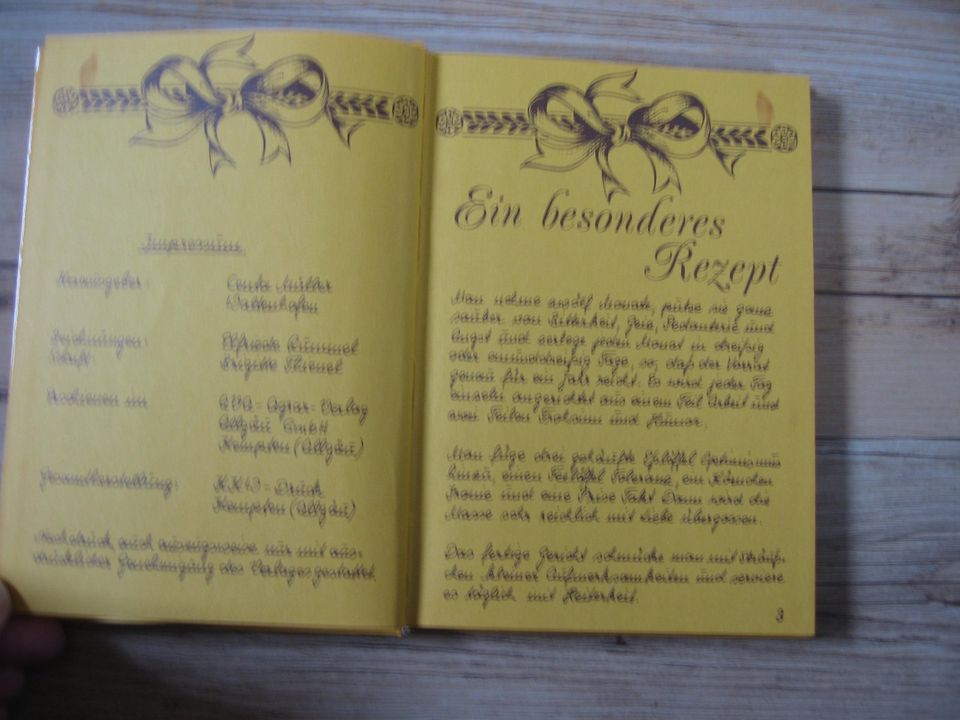 Impressum
Herausgeber: Cenka Müller
Waltenhofen
Zeichnungen: Elfriede Rummel
Schrift: Brigitte Thienel
Erschienen im AVA-Agrar-Verlag
Allgäu GmbH
Kempten (Allgäu)
Gesamtherstellung: KKW-Druck
Kempten (Allgäu)
Nachdruck auch auszugsweise nur mit aus-
drücklicher Genehmigung des Verlages gestattet.
Ein besonderes
Rezept
Man nehme zwölf Monate, putze sie ganz
sauber von Bitterkeit, Geiz, Pedanterie und
Angst und zerlege jeden Monat in dreißig
oder einunddreißig Tage, so, daß der Vorrat
genau für ein Jahr reicht. Es wird jeder Tag
einzeln angerichtet aus einem Teil Arbeit und
zwei Teilen Frohsinn und Humor.
Man füge drei gehäufte Eßlöffel Optimismus
hinzu, einen Teelöffel Toleranz, ein Körnchen
Ironie und eine Prise Takt. Dann wird die
Masse sehr reichlich mit Liebe übergossen.
Das fertige Gericht schmücke man mit Sträuß-
chen kleiner Aufmerksamkeiten und serviere
es täglich mit Heiterkeit.
3